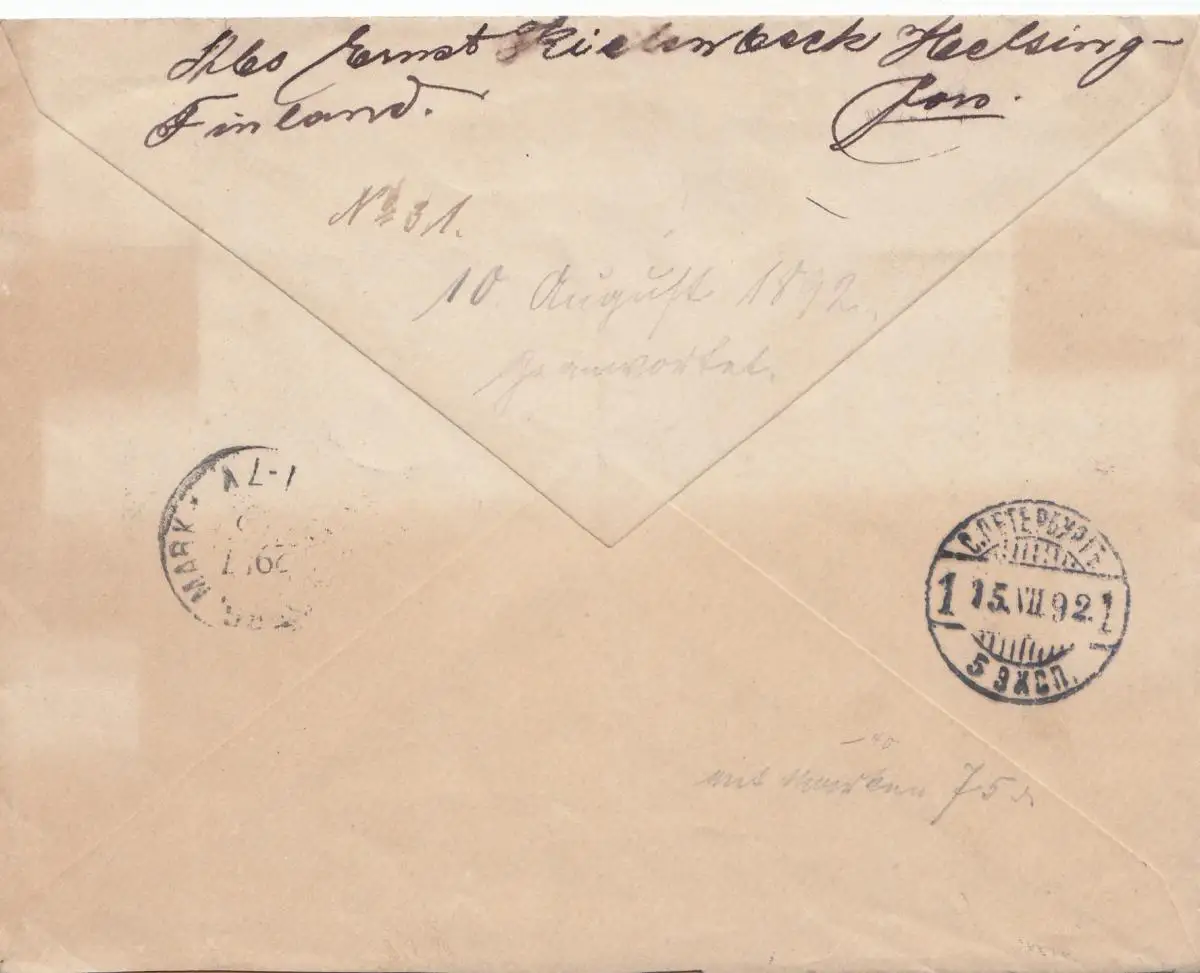 Abs Ernst Helsing-
fors.
Finland.
№ 31.
10. August 1892.
geanwortet.
MARK
С.ПЕТЕРБУРГЪ
1 15.VII.92. 1
5 ЭКСП.
mit Marken 75